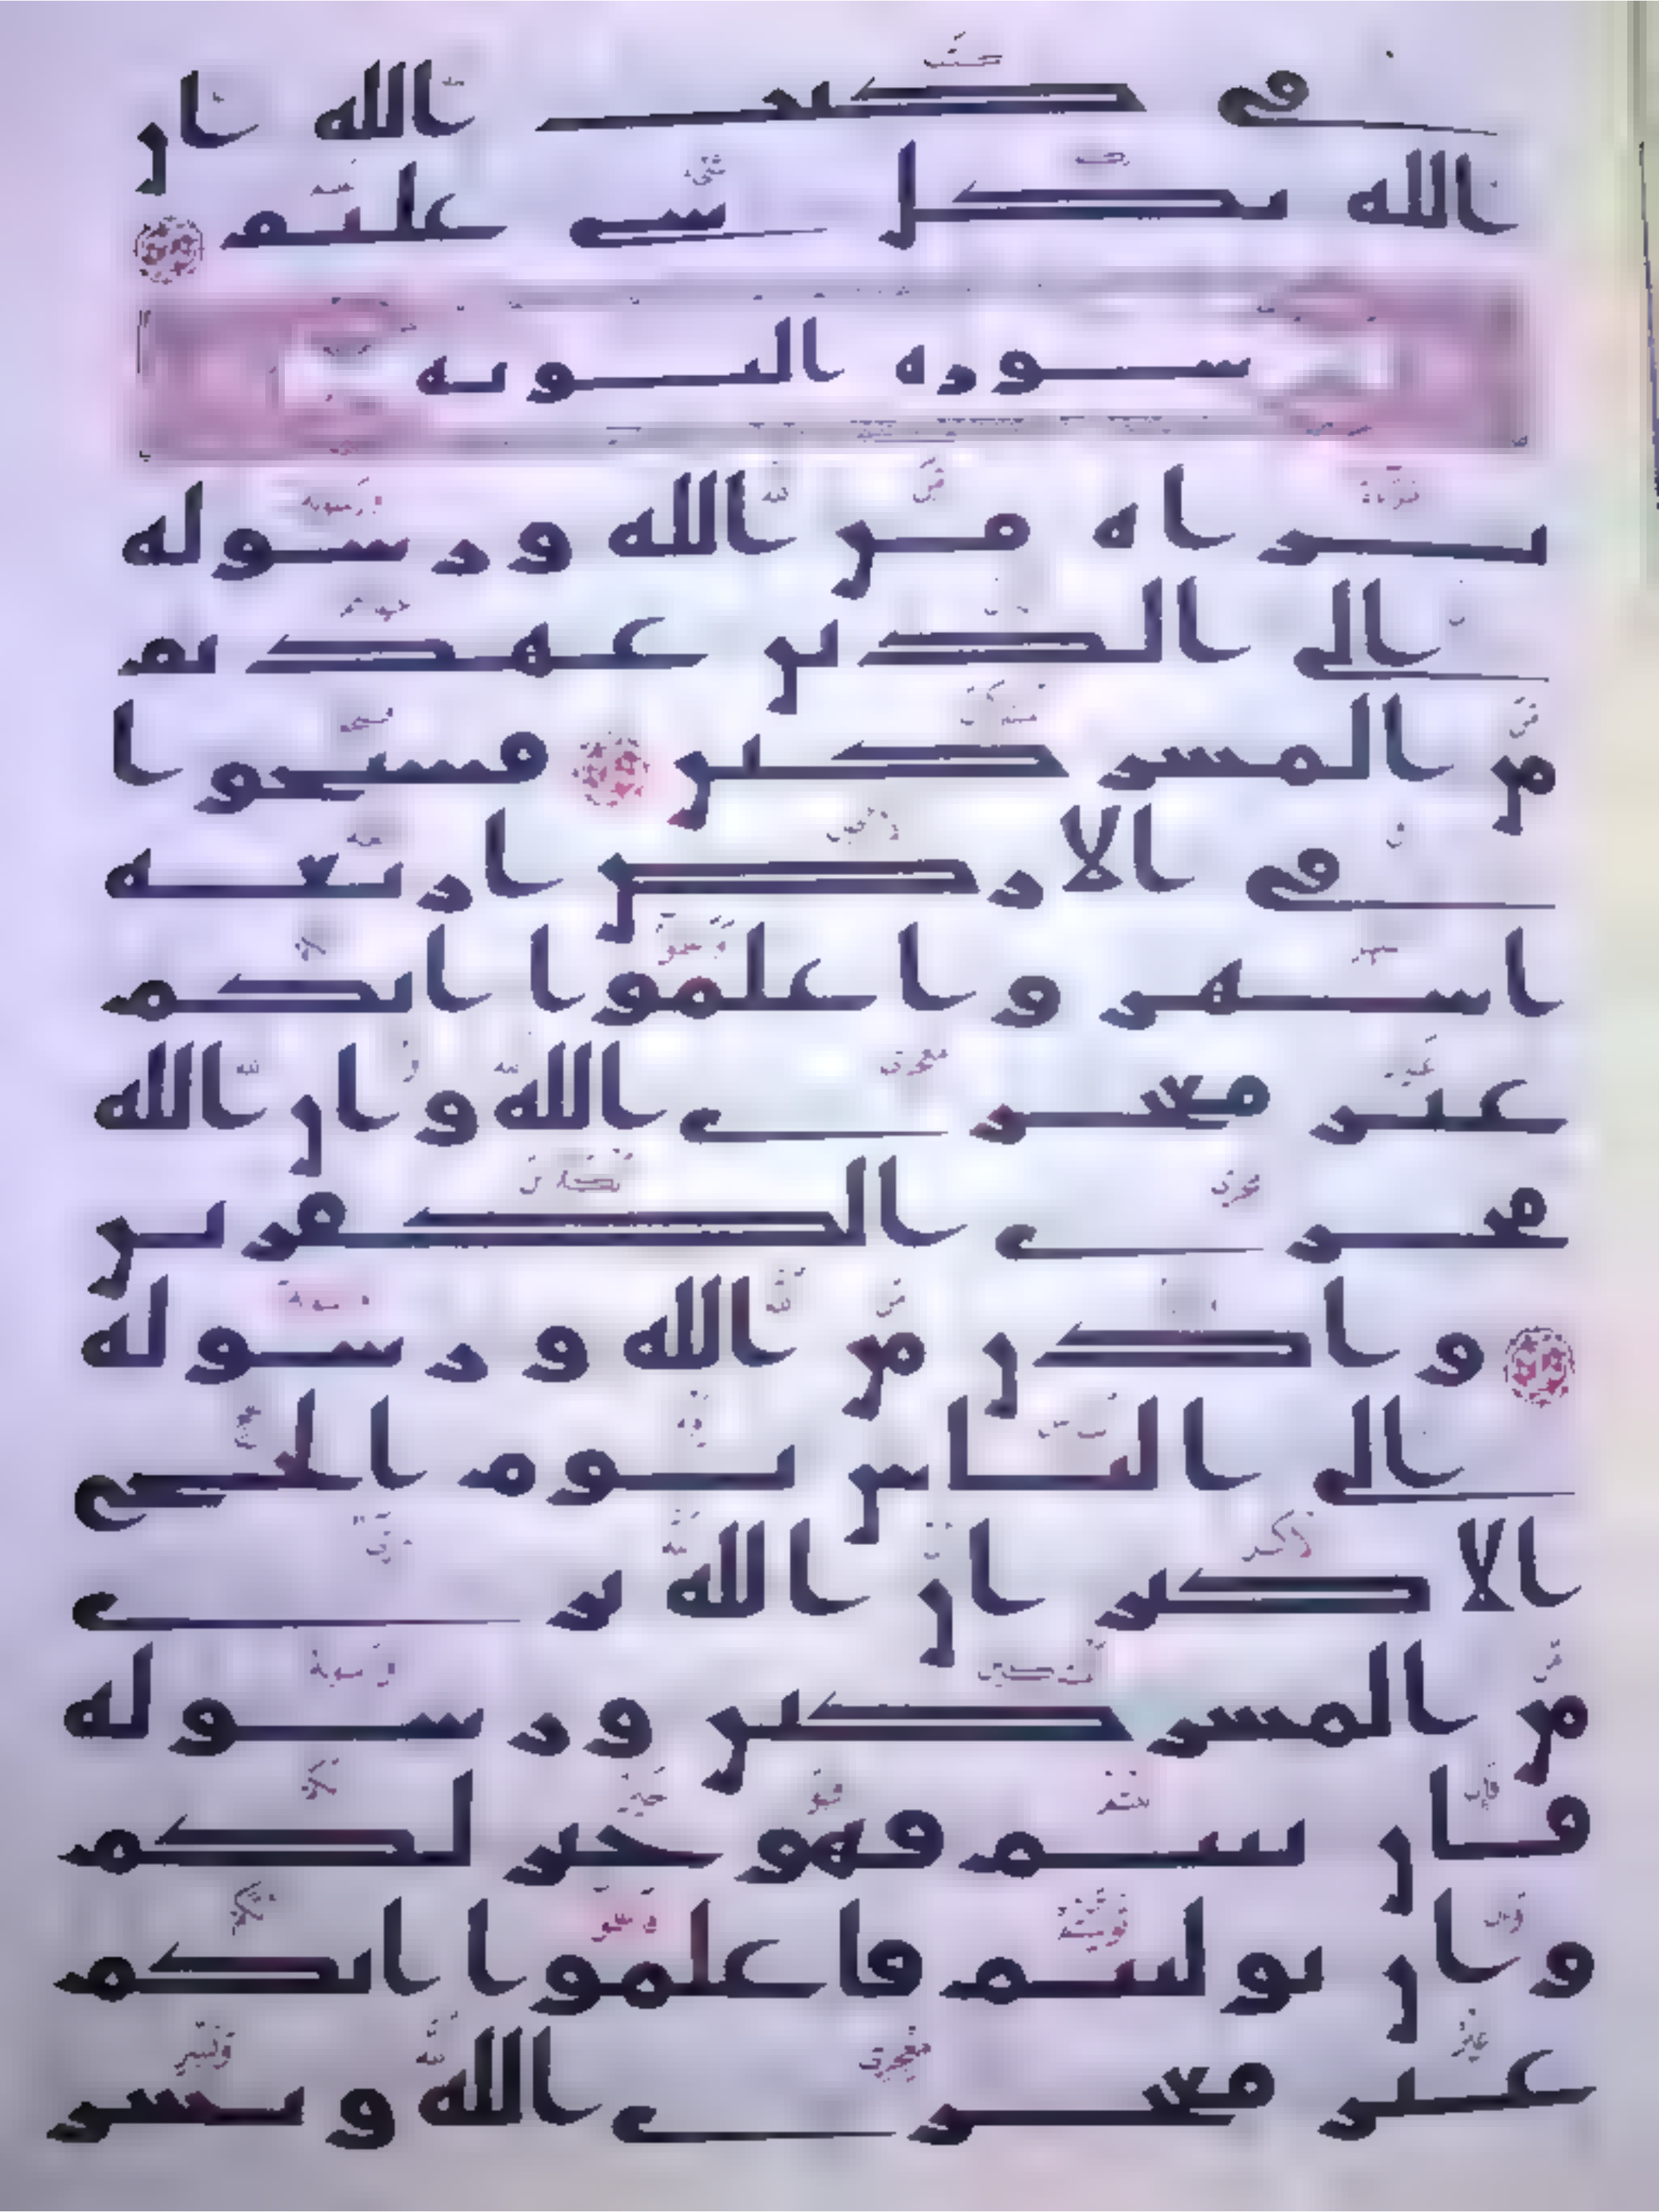 في كتب الله ان
الله بكل شي عليم
سورة التوبة
براة من الله ورسوله
الى الذين عهدتم
من المشركين فسيحوا
في الارض اربعة
اشهر واعلموا انكم
غير معجزي الله وان الله
مخزي الكفرين
واذن من الله ورسوله
الى الناس يوم الحج
الاكبر ان الله بري
من المشركين ورسوله
فان تبتم فهو خير لكم
وان توليتم فاعلموا انكم
غير معجزي الله وبشر